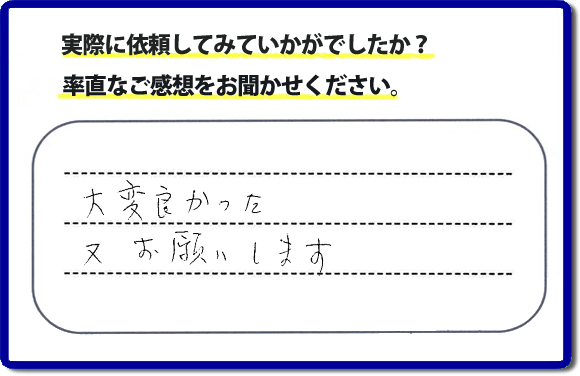 実際に依頼してみていかがでしたか？
率直なご感想をお聞かせください。
大変良かった
又お願いします